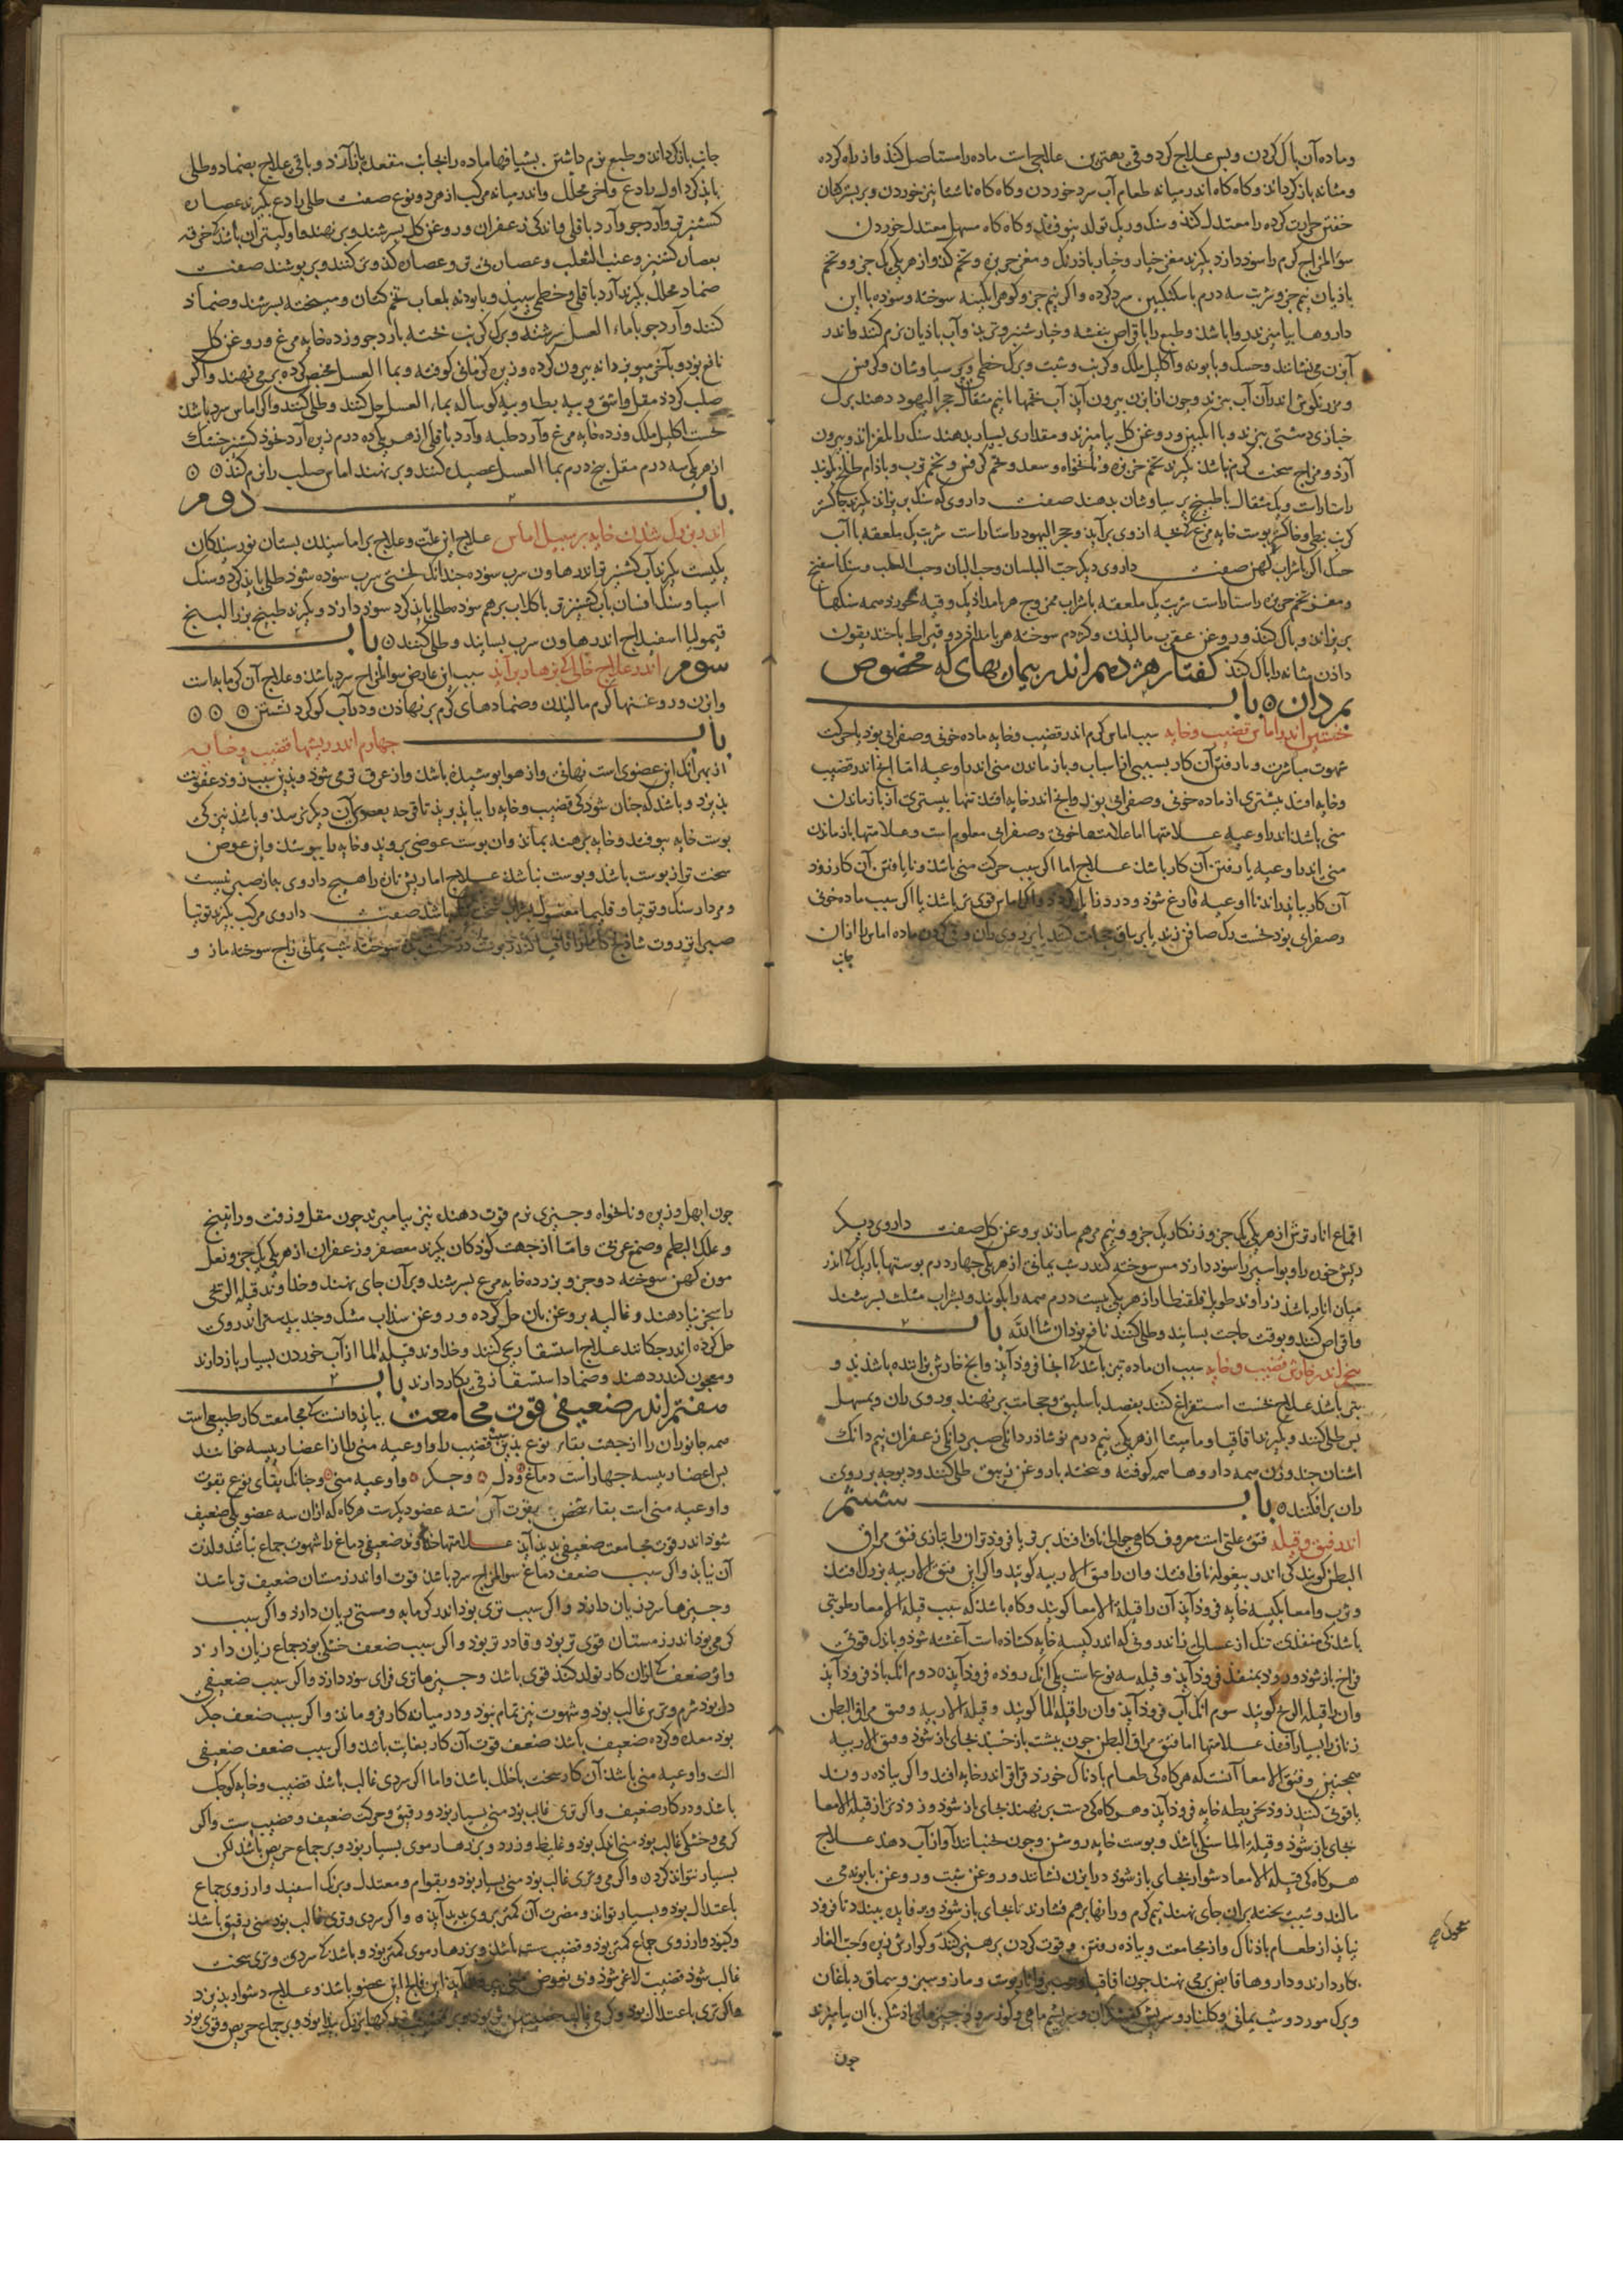 و ماده آن پاک کردن و پس علاج کرد و قی بهترین علاجی است ماده را مستاصل کند و از راه کرده
و مثانه باز گرداند و کاه کاه اندر میانه طعام آب سرد خوردن و کاه کاه ناشتا نیز خوردن و بر بستر کتان
خفتن حرارت کرده را معتدل کند و سنک و ریک تولد نیوفتد و کاه کاه مسهل معتدل خوردن
سوالمزاج کرم را سود دارد بکیرند مغز خیار و خیار باذرنک و مغز خربزه و تخم کدو از هر یکی یک جزو و تخم
باذیان نیم جزو شربت سه درم با سکنکبین سرد کرده و اکر نیم جزو کوهر ابکینه سوخته و سوده با این
داروها بیامیزند روا باشذ و طبع را باقراص بنفشه و خیار شنبر و تربذ و آب باذیان نرم کنند و اندر
آبزن می نشانند و حسک و بابونه و اکلیل ملک و کرنب و شبت و برک خطمی و پر سیاوشان و کرفس
و مرزنکوش اندر آن آب بپزند و جون از ابزن بیرون آید آب نیم مثقال حجر الیهود دهند برک
خبازی دشتی بپزند و با انکبین و روغن کل بیامیزند و مقداری بسیار بدهند سنک را بلغزاند و بیرون
آرد و مزاج سخت کرم باشذ بکیرند تخم خربزه و نانخواه و سعد و تخم کرفس و تخم ترب و باذام طلخ بکوبند
راستاراست و یک مثقال با طبیخ پر سیاوشان بدهند صفت داروی که سنک بریزاند بکیرند خاکستر
کرنب نبطی و خاکستر پوست خایه مرغ کی بجه ازوی برآید و حجر الیهود راستاراست شربت یک ملعقه با آب
حسک اکر با شراب کهن صفت داروی دیکر حب البلسان و حب البان و حب المحلب و سنک اسفنج
و مغز تخم خربزه راستاراست شربت یک ملعقه با شراب ممزوج هر بامداذ یک وقیه بخورد همه سنکها
بریزاند و پاک کند و روغن عقرب مالیدن و کژدم سوخته هر بامداذ دو قیراط با خندیقون
داذن مثانه را پاک کند کفتار هژدهم اندر بیماریهای که مخصوص
بمردان باب
نخستین اندر اماس قضیب و خایه سبب اماس کرم اندر قضیب و خایه ماده خونی و صفرایی بود یا حرکت
شهوت مباشرت و نارفتن آن کار بسببی از اسباب و باز ماندن منی اندر اوعیه اما انج اندر قضیب
و خایه افتد بیشتری از ماده خونی و صفرایی بوذ و انج اندر خایه افتد تنها بیستری آن باز ماندن
منی باشذ اندر اوعیه علامتها اما علامتهای خونی و صفرایی معلوم است و علامتها باز ماندن
منی اندر اوعیه نارفتن آن کار باشذ علاج اما اکر سبب حرکت منی باشذ و نایافتن آن کار زود
آن کار بیاید راند تا اوعیه فارغ شوذ و درد اماس قوی تر باشذ یا اکر سبب ماده خونی
و صفرایی بوذ نخست رک صافن زنند یا بر ساق حجامت کنند یا بر روی ران و قی کردن ماده اماس را از ان
جانب
جانب باز کرداند و طبع نرم داشتن بشیافها ماده را بجانب مقعد باز آرد و باقی علاج بضماد و طلی
باید کرد اول رادع و اخر محلل و اندر میانه مرکب از هر دو نوع صفت طلی رادع بکیرند عصاره
کشنیز تر و آرد جو و آرد باقلی و اندکی زعفران و روغن کل بسرشند و بر نهند و اولیتر آن باشذ کی خرقه
بعصاره کشنیز و عنب الثعلب و عصاره کدو تر کنند و بر پوشند صفت
ضماد محلل بکیرند آرد باقلی و خطمی سپیذ و بابونه بلعاب تخم کتان و میبخته بسرشند و ضماد
کنند و آرد جو با ماء العسل بسرشند و برک کرنب پخته با آرد جو و زرده خایه مرغ و روغن کل
نافع بوذ و بآخر مویز دانه بیرون کرده و زیره کرمانی کوفته و بماء العسل مخبص کرده بر می نهند و اکر
صلب کردد مقل و اشق و پیه بط و پیه کوساله بماء العسل حل کنند و طلی کنند و اکر اماس سرد باشذ
نخست اکلیل ملک و زرده خایه مرغ و آرد حلبه و آرد باقلی از هر یکی ده درم زیره آرد نخوذ کشنیز خشک
از هر یکی سه درم مقل پنج درم بماء العسل عصیده کنند و بر نهند اماس صلب را نرم کند
باب دوم
اندر بزرک شذن خایه بر سبیل اماس علاج این علت و علاج بر اماسیدن بستان نورسیدکان
یکیست بکیرند آب کشنیز تر اندر هاون سرب سوده جندانک لختی سرب سوده شوذ طلی باید کرد و سنک
اسیا و سنک افسان باب کشنیز تر با کلاب بر هم سوده طلی باید کرد سود دارد و بکیرند طبیخ بزر البنج
قیمولیا اسفیداج اندر هاون سرب بسایند و طلی کنند باب
سوم اندر علاج خایه که بزهار بر آید سبب این عارض سوالمزاج سرد باشذ و علاج آن کرمابه است
و ابزن و روغنها کرم مالیدن و ضمادهای کرم بر نهادن و در آب کوکرد نشستن
باب جهارم اندر ریشها قضیب و خایه
از بهر انک این عضوی است نهانی و از هوا پوشیده باشذ و از عرق تر می شوذ و بذین سبب زود عفونت
پذیرد و باشذ که جنان شوذ کی قضیب و خایه را بباید برید تا قرحه بعضوی آن دیکر نرسد و باشذ نیز کی
پوست خایه بیوفتد و خایه برهنه بماند وان پوست عوضی بروید و خایه را بپوشذ و این عوض
سخت تر از پوست باشذ و پوست نباشذ علاج اما ریش تازه را هیج داروی به از صبر نیست
و مردار سنک و توتیا و قلیمیا مغسول بشراب باشذ صفت داروی مرکب بکیرند توتیا
صبر انزروت شاذنج کندر پوست درخت سوخته شب یمانی زاج سوخته مازو
اقماع انار ترش از هر یکی یک جزو زنکار یک جزو و نیم مرهم سازند بروغن کل صفت داروی دیکر
ریش خون را و بواسیر را سود دارد مس سوخته کندر شب یمانی از هر یکی جهار درم پوستها باریک کی اندر
میان انار باشذ زراوند طویل قلقطار از هر یکی بیست درم همه را بکوبند و بشراب مثلث بسرشند
و اقراص کنند و بوقت حاجت بسایند و طلی کنند نافع بوذ ان شا الله باب
پنجم اندر خارش قضیب و خایه سبب ان ماده تیز باشذ کی انجا فرود آید و انج خارش فزاینده باشذ بذ و
بتر باشذ علاج نخست استفراغ کنند بفصد باسلیق و حجامت بر نهند و روی ران و بمسهل
پس طلی کنند و بکیرند اقاقیا و مامیثا از هر یکی نیم درم نوشاذر دانکی صبر دانکی زعفران نیم دانک
اشنان جند وزن همه داروها همه کوفته و بیخته با روغن زیبق طلی کنند و دیوجه بر روی
ران برافکنند باب ششم
اندر فتق و قیله فتق علتی است معروف کاهی حوالی ناف افتد برتر یا فروذتر ان را بتازی فتق مراق
البطن کویند کی اندر پیغوله ران افتد وان را فتق الاربیه کویند و اکر این فتق الاربیه بزرک افتد
و ثرب و امعا بکیسه خایه فروذ آید آن را قیلة الامعا کویند و کاه باشذ که سبب قیلة الامعا رطوبتی
باشذ کی منفذی تنک از
فراخ باز شوذ و روده بمنفذ فروذ آید و قیله سه نوع است یکی انک روده فروذ آید دوم انک باذ فروذ آید
وان را قیلة الریح کویند سوم انک آب فروذ آید وان را قیلة الما کویند و قیلة الاربیه و فتق مراق البطن
زنان را بسیار افتد علامتها اما فتق مراق البطن جون بپشت باز خسبد بجای باز شوذ و فتق الاربیه
همجنین و فتق الامعا آنست که هرکاه کی طعام باذناک خورد قراقر اندر خایه افتد و اکر بیاذه روند
یا قوتی کنند زود بخریطه خایه فروذ آید و هرکاه کی دست بر نهند بجای باز شوذ و زودتر از قیلة الامعا
بجای باز شوذ و قیلة الما سنکی باشذ و پوست خایه روشن و جون بجنبانند آواز آب دهد علاج
هرکاه کی قیلة الامعا دشوار بجای باز شود در ابزن نشانند و روغن شبت و روغن بابونه می
مالند و شبت پخته بران جای نهند نیم کرم و رانها بر هم فشارند تا بجای باز شوذ و برفاده ببندد تا فروذ
نیاید از طعام باذناک و از مجامعت و پیاذه رفتن و قوت کردن پرهیز کنند و کوارش زیره و حب الغار
بکار دارند و داروها قابض بر می نهند جون اقاقیا و مازو و سبز و سماق دباغان
و برک مورد و شب یمانی و کلنار و سریش کفشکران و سریشم ماهی و کندر و از جیزهای باذشکن با ان بیامیزند
معجون
جون
جون ابهل و زیره و نانخواه و جیزی نرم قوت دهند نیز بیامیزند جون مقل و زفت و راتینج
و علک البطم و صمغ عربی و اما از جهت کودکان بکیرند معصفر و زعفران از هر یکی یک جزو نعل
مون کهن سوخته دو جزو بزرده خایه مرغ بسرشند و بر آن جای نهند و خداوند قیلة الریح
را سجزنیا دهند و غالیه بروغن بان حل کرده و روغن سذاب مشک و جند بیدستر اندر وی
حل کرده اندر جکانند علاج استسقا ریحی کنند و خداوند قیلة الما از آب خوردن بسیار باز دارند
و معجون کندر دهند و ضماد استسقا زقی بکار دارند باب
هفتم اندر ضعیفی قوت مجامعت بباید دانست کی مجامعت کار طبیعی است
همه جانوران را از جهت بقای نوع بدین سبب قضیب را و اوعیه منی را از اعضا رییسه خوانند
پس اعضا رییسه جهار است دماغ و دل و جکر و اوعیه منی و جنانک بقای نوع بقوت
و اوعیه منی است بقا شخص بقوت آن سه عضو دیکرست هرکاه که ازان سه عضو یکی ضعیف
شوذ اندر قوت مجامعت ضعیفی پدید آید علامتها خداوند ضعیفی دماغ را شهوت جماع نباشذ و لذت
آن نیابد و اکر سبب ضعف دماغ سوالمزاج سرد باشذ قوت او اندر زمستان ضعیف تر باشذ
و جیزها سرد زیان دارد و اکر سبب تری بوذ اندر کرمابه و مستی زیان دارد و اکر سبب
کرمی بوذ اندر زمستان قوی تر بوذ و قادر تر بوذ و اکر سبب ضعف خشکی بوذ جماع زیان دارد
و این ضعف کی ازان کار تولد کند قوی باشذ و جیزها تری فزای سود دارد و اکر سبب ضعیفی
دل بوذ شرم و ترس غالب بوذ و شهوت نیز تمام نبود و در میانه کار فرو ماند و اکر سبب ضعف جکر
بوذ معده و کرده ضعیف باشذ ضعف قوت آن کار بغایت باشذ و اکر سبب ضعف ضعیفی
الت و اوعیه منی باشذ آن کار سخت با خلل باشذ و اما اکر سردی غالب باشذ قضیب و خایه کوجک
باشذ و در کار ضعیف و اکر تری غالب بوذ منی بسیار بوذ و رقیق و حرکت ضعیف و قضیب ست و اکر
کرمی و خشکی غالب بوذ منی اندک بوذ و غلیظ و زرد و بر زهار موی بسیار بوذ و بر جماع حریص باشذ لکن
بسیار نتواند کردن و اکر کرمی و تری غالب بوذ منی بسیار بوذ و بقوام و معتدل و برنک اسفید و ارزوی جماع
باعتدال بوذ و بسیار تواند و مضرت آن کمتر بروی پدید آید و اکر سردی و تری غالب بوذ منی رقیق باشذ
و کبود و ارزوی جماع کمتر بوذ و قضیب ست باشذ و بر زهار موی کمتر بوذ و باشذ کی سردی و تری سخت
غالب شوذ قضیب لاغر شوذ این فالج این عضو باشذ و علاج دشوار پذیرد